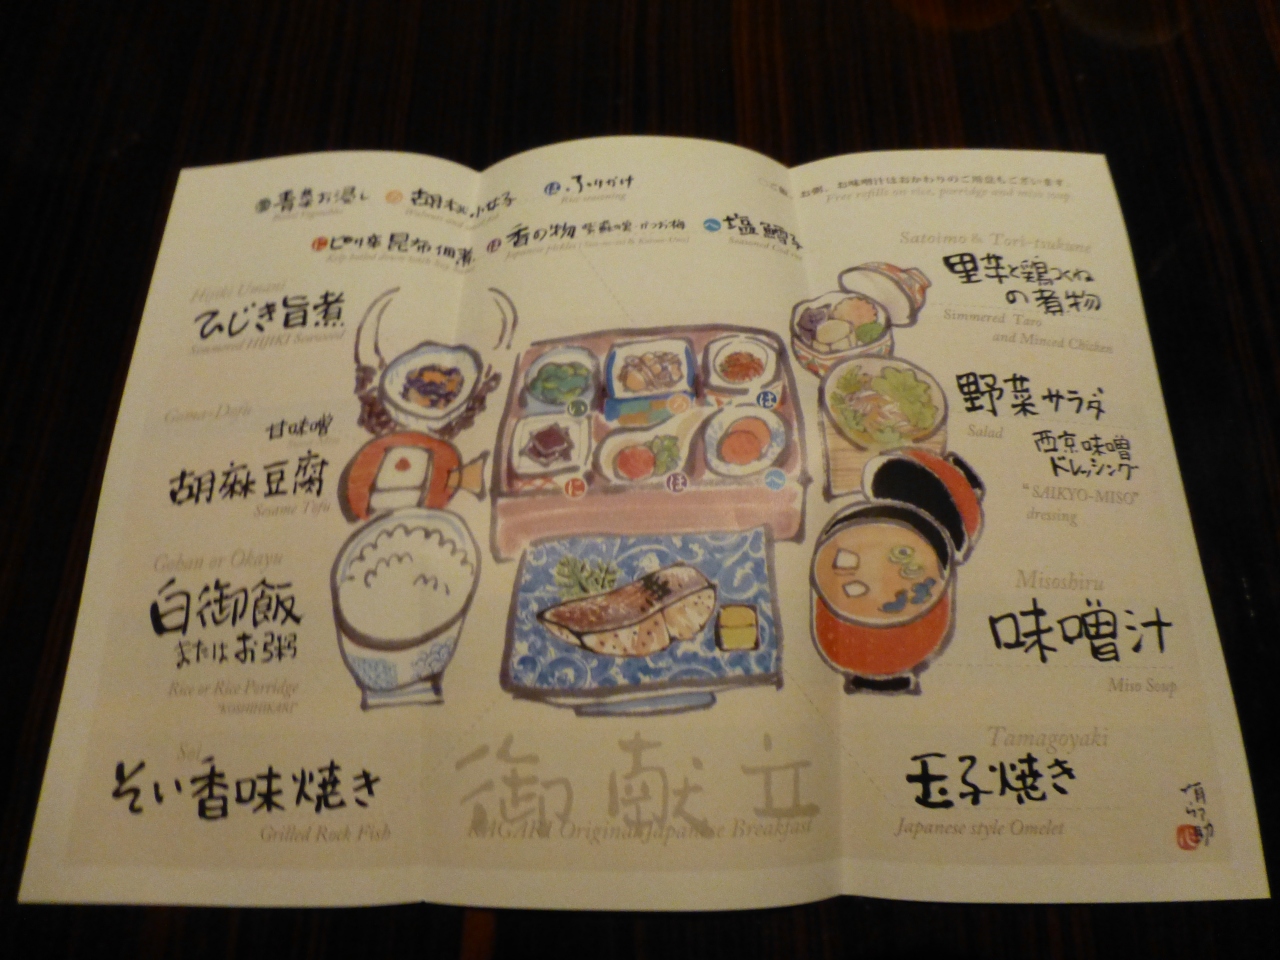 青菜お浸し
ろ 胡桃小女子
は ふりかけ
Rice seasoning
お粥、お味噌汁はおかわりのご用意もございます。
Free refills on rice, porridge and miso soup.
に ピリ辛昆布佃煮
ほ 香の物
へ 塩鱈子
Hijiki Umani
ひじき旨煮
Simmered HIJIKI Seaweed
Goma-Dofu
甘味噌
胡麻豆腐
Sesame Tofu
Gohan or Okayu
白御飯
またはお粥
Rice or Rice Porridge
"KOSHIHIKARI"
Soi
そい香味焼き
Grilled Rock Fish
い
ろ
は
に
ほ
へ
御献立
KAGARI Original Japanese Breakfast
Satoimo & Tori-tsukune
里芋と鶏つくね
の煮物
Simmered Taro
and Minced Chicken
野菜サラダ
Salad
西京味噌
ドレッシング
"SAIKYO-MISO"
dressing
Misoshiru
味噌汁
Miso Soup
Tamagoyaki
玉子焼き
Japanese style Omelet